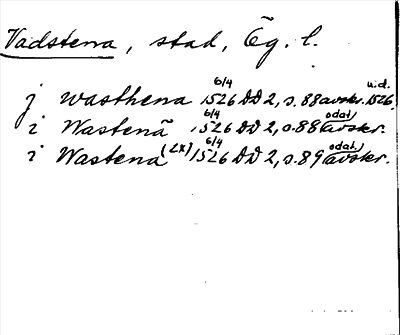 Vadstena, stad, Ög. l.
j wasthena 6/4 1526 DD 2, s. 88 avskr. u.d. 1526.
i Wastenā 6/4 1526 DD 2, s. 88 odat. avskr.
i Wastena (2x) 6/4 1526 DD 2, s. 89 odat. avskr.